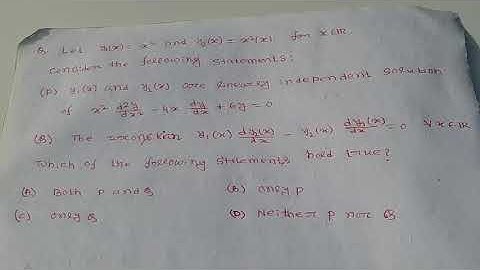 Q. Let y₁(x) = x² and y₂(x) = x²|x| for x∈ℝ.
Consider the following statements:
(P) y₁(x) and y₂(x) are linearly independent solution
of x² d²y/dx² - 4x dy/dx + 6y = 0
(Q) The wronskian y₁(x) dy₂(x)/dx - y₂(x) dy₁(x)/dx = 0 ∀ x∈ℝ
Which of the following statements hold true?
(A) Both P and Q (B) only P
(C) only Q (D) Neither P nor Q.